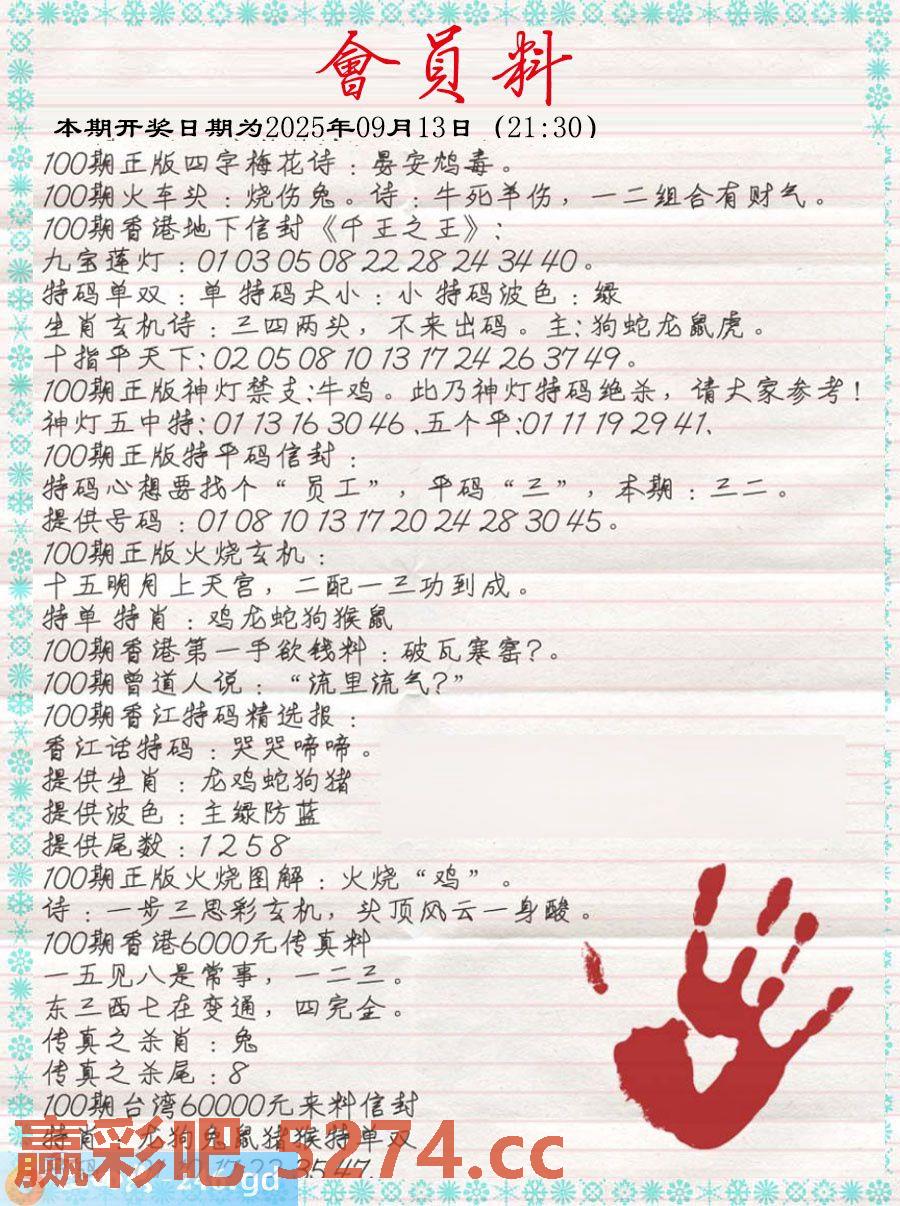 會員料
本期开奖日期为2025年09月13日（21:30）
100期正版四字梅花诗：晏安鸩毒。
100期火车头：烧伤兔。诗：牛死羊伤，一二组合有财气。
100期香港地下信封《千王之王》：
九宝莲灯：01 03 05 08 22 28 24 34 40。
特码单双：单 特码大小：小 特码波色：绿
生肖玄机诗：三四两头，不来出码。主：狗蛇龙鼠虎。
十指平天下：02 05 08 10 13 17 24 26 37 49。
100期正版神灯禁支：牛鸡。此乃神灯特码绝杀，请大家参考！
神灯五中特：01 13 16 30 46、五个平：01 11 19 29 41、
100期正版特平码信封：
特码心想要找个“员工”，平码“三”，本期：三二。
提供号码：01 08 10 13 17 20 24 28 30 45。
100期正版火烧玄机：
十五明月上天宫，二配一三功到成。
特单 特肖：鸡龙蛇狗猴鼠
100期香港第一手欲钱料：破瓦寒窑？。
100期曾道人说：“流里流气？”
100期香江特码精选报：
香江话特码：哭哭啼啼。
提供生肖：龙鸡蛇狗猪
提供波色：主绿防蓝
提供尾数：1 2 5 8
100期正版火烧图解：火烧“鸡”。
诗：一步三思彩玄机，头顶风云一身酸。
100期香港6000元传真料
一五见八是常事，一二三。
东三西七在变通，四完金。
传真之杀肖：兔
传真之杀尾：8
100期台湾60000元来料信封
特肖：龙狗兔鼠猪猴特单双
赢彩吧.5274.cc
35 47.